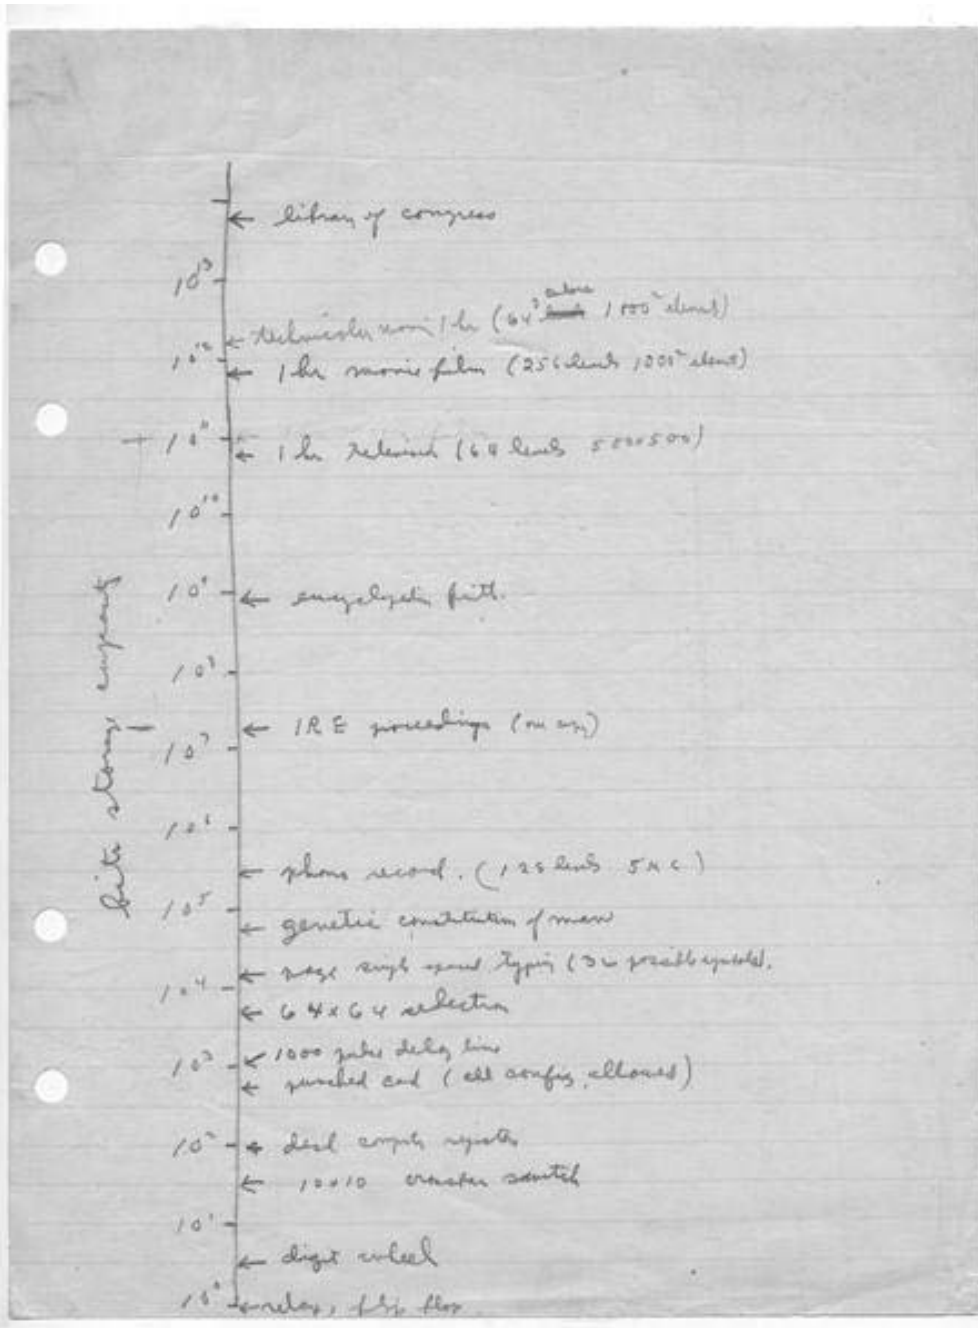 library of congress
10^13
technicolor movie 1 hr (64^3 colors 1000^2 elements)
10^12
1 hr movie film (256 levels 1000^2 elements)
10^11
1 hr television (64 levels 500x500)
10^10
10^9
encyclopedia britt.
10^8
IRE proceedings (one copy)
10^7
10^6
phono record. (128 levels 5KC)
10^5
genetic constitution of man
page single spaced typing (32 possible symbols).
10^4
64x64 selection
1000 pulse delay line
10^3
punched card (all config. allowed)
10^2
desk register
10x10 crossbar switch
10^1
digit wheel
10^0
relay, flip flop
bits storage capacity